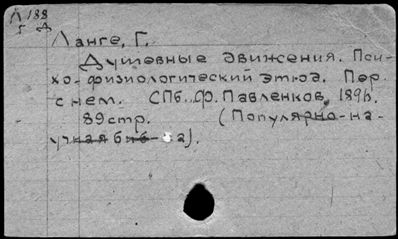 Л 188
Г Д
Ланге, Г.
Душевные движения. Пси-
хо-физиологический этюд. Пер.
с нем. СПб. Ф. Павленков, 1896.
89 стр. (Популярно-на-
учная биб-ка).